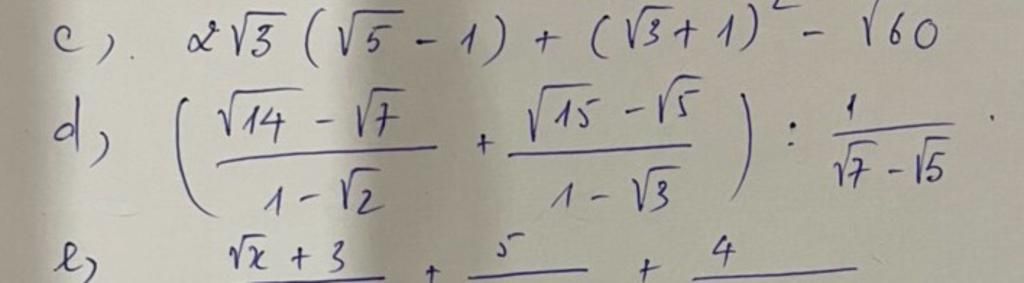 c). 2√3 (√5 - 1) + (√3 + 1)² - √60
d) ( (√14 - √7)/(1 - √2) + (√15 - √5)/(1 - √3) ) : 1/(√7 - √5) .
e) √x + 3 + 5 + 4